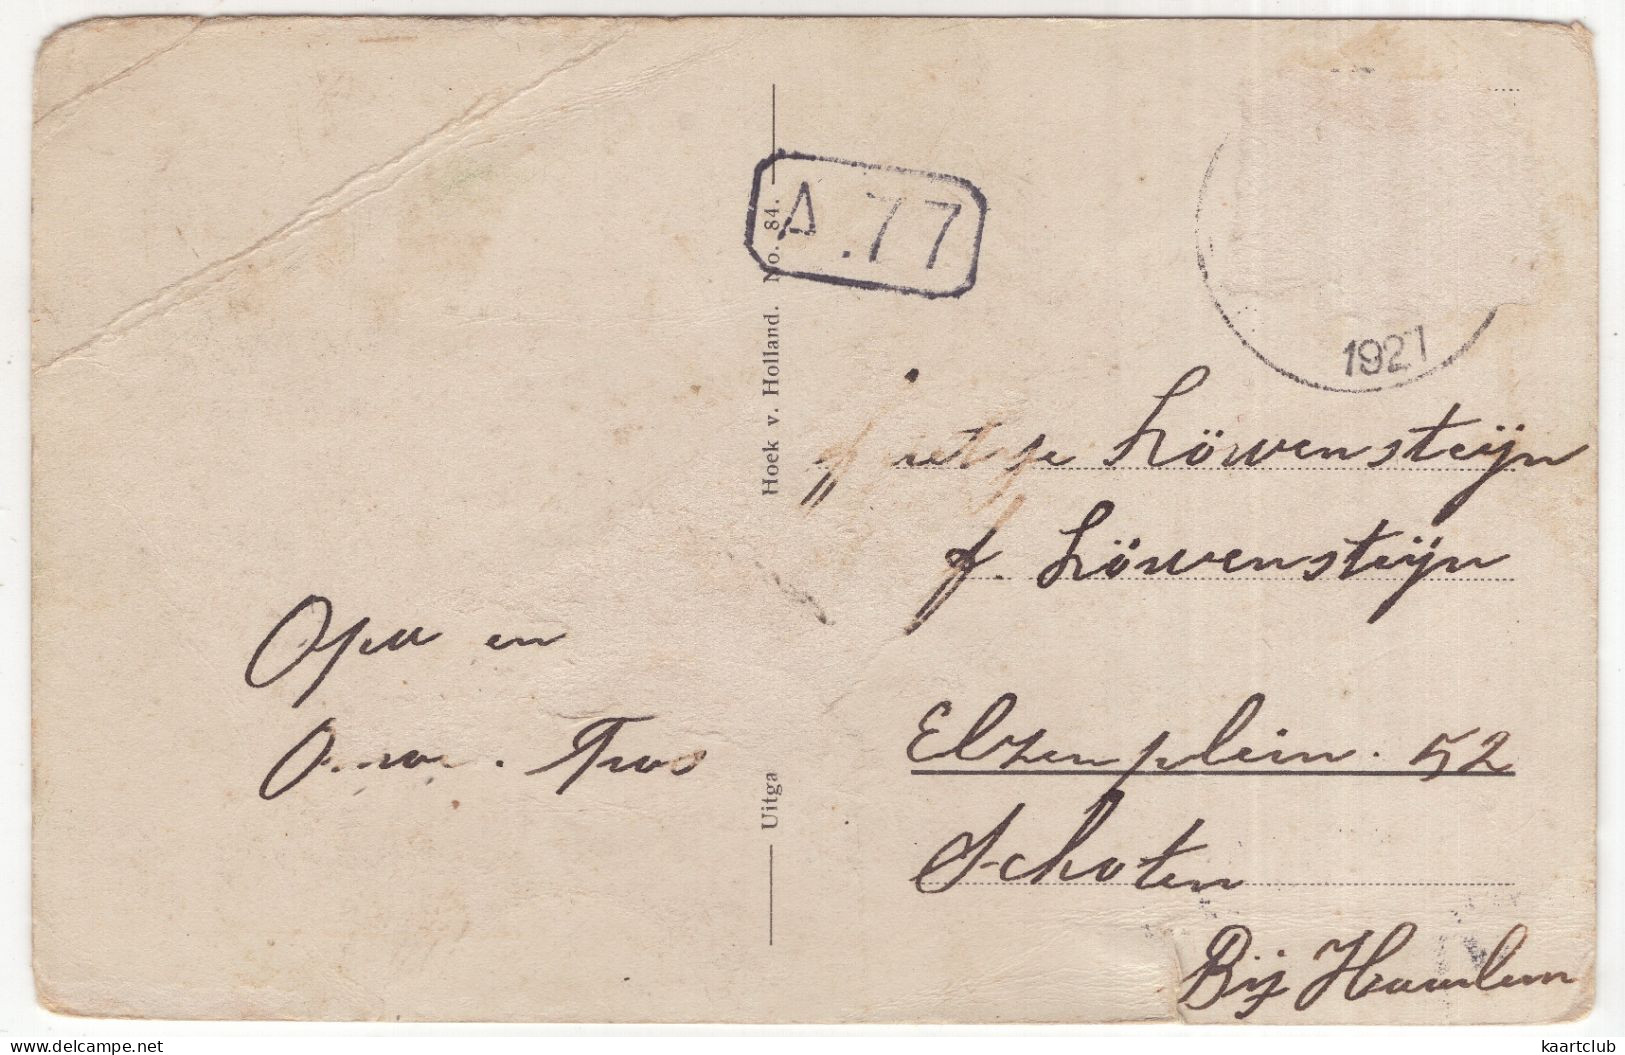 A.77
1921
Hoek v. Holland. No. 84.
Uitga
Löwensteijn
f. Löwensteijn
Elzenplein. 52
Schoten
Bij Haarlem
Opa en
Oma. Tros
www.delcampe.net
kaartclub